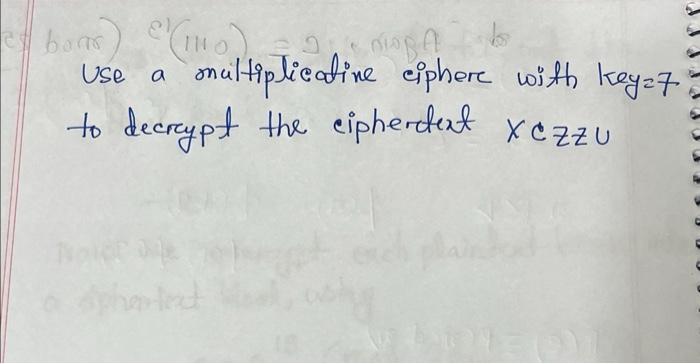 Use a multiplicative ciphere with key=7
to decrypt the ciphertext XCZZU